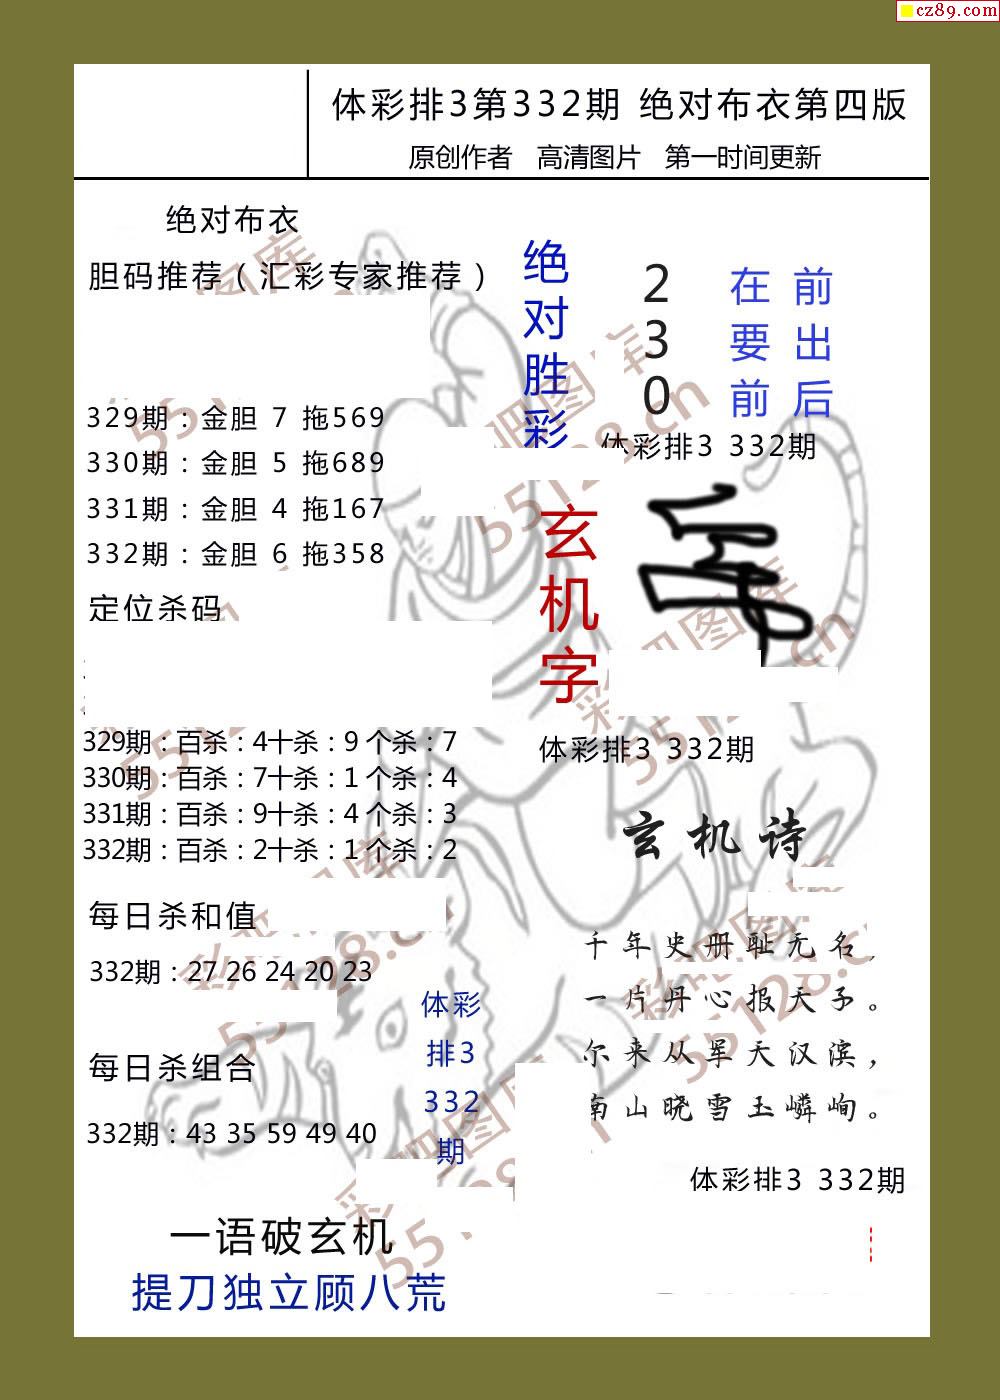 cz89.com
体彩排3第332期 绝对布衣第四版
原创作者 高清图片 第一时间更新
绝对布衣
胆码推荐（汇彩专家推荐）
329期：金胆 7 拖569
330期：金胆 5 拖689
331期：金胆 4 拖167
332期：金胆 6 拖358
定位杀码
329期：百杀：4十杀：9 个杀：7
330期：百杀：7十杀：1 个杀：4
331期：百杀：9十杀：4 个杀：3
332期：百杀：2十杀：1 个杀：2
每日杀和值
332期：27 26 24 20 23
每日杀组合
332期：43 35 59 49 40
体彩
排3
332
期
一语破玄机
提刀独立顾八荒
绝对胜彩
230
前出后
在要前
体彩排3 332期
玄机字
体彩排3 332期
玄机诗
千年史册耻无名，
一片丹心报天子。
尔来从军天汉滨，
南山晓雪玉嶙峋。
体彩排3 332期
彩吧图库
55128.cn